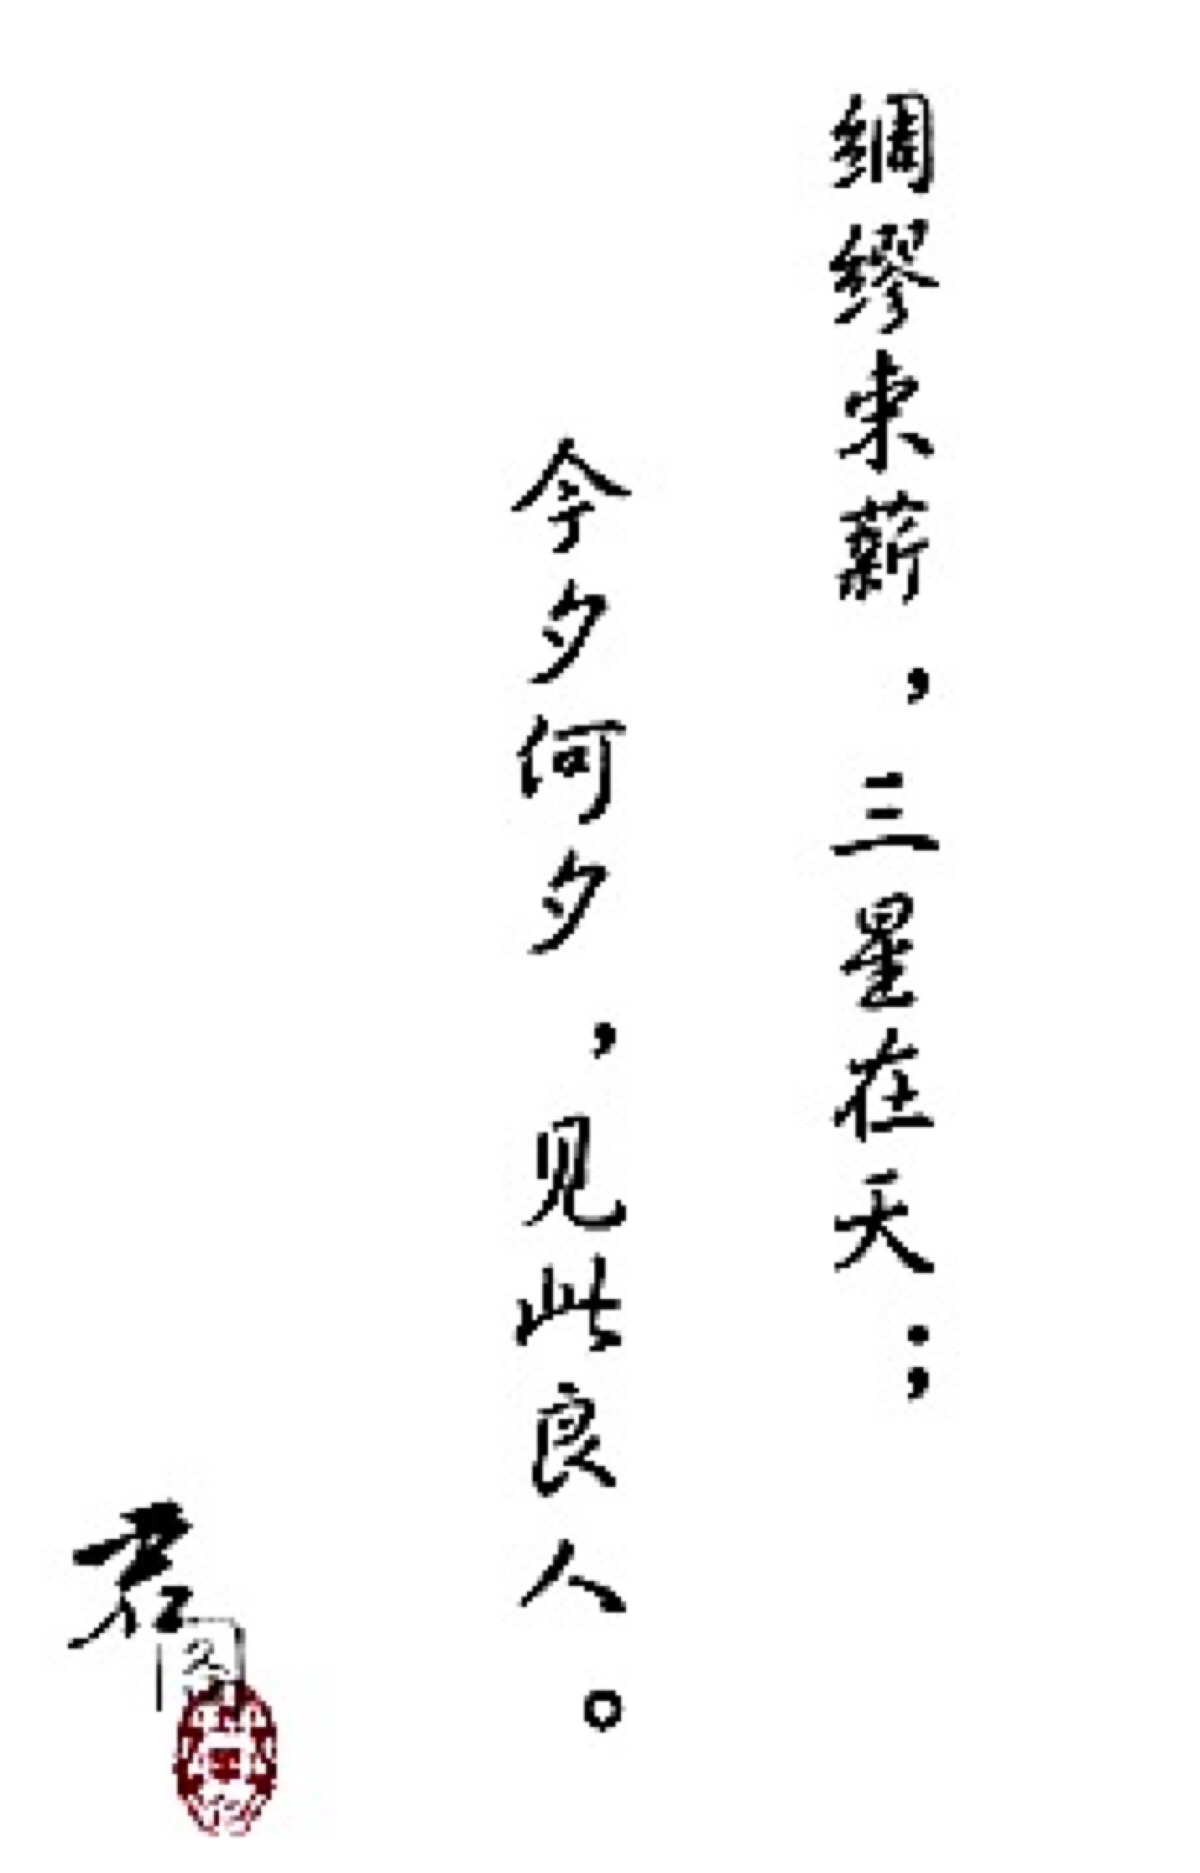 绸缪束薪，三星在天；
今夕何夕，见此良人。
君